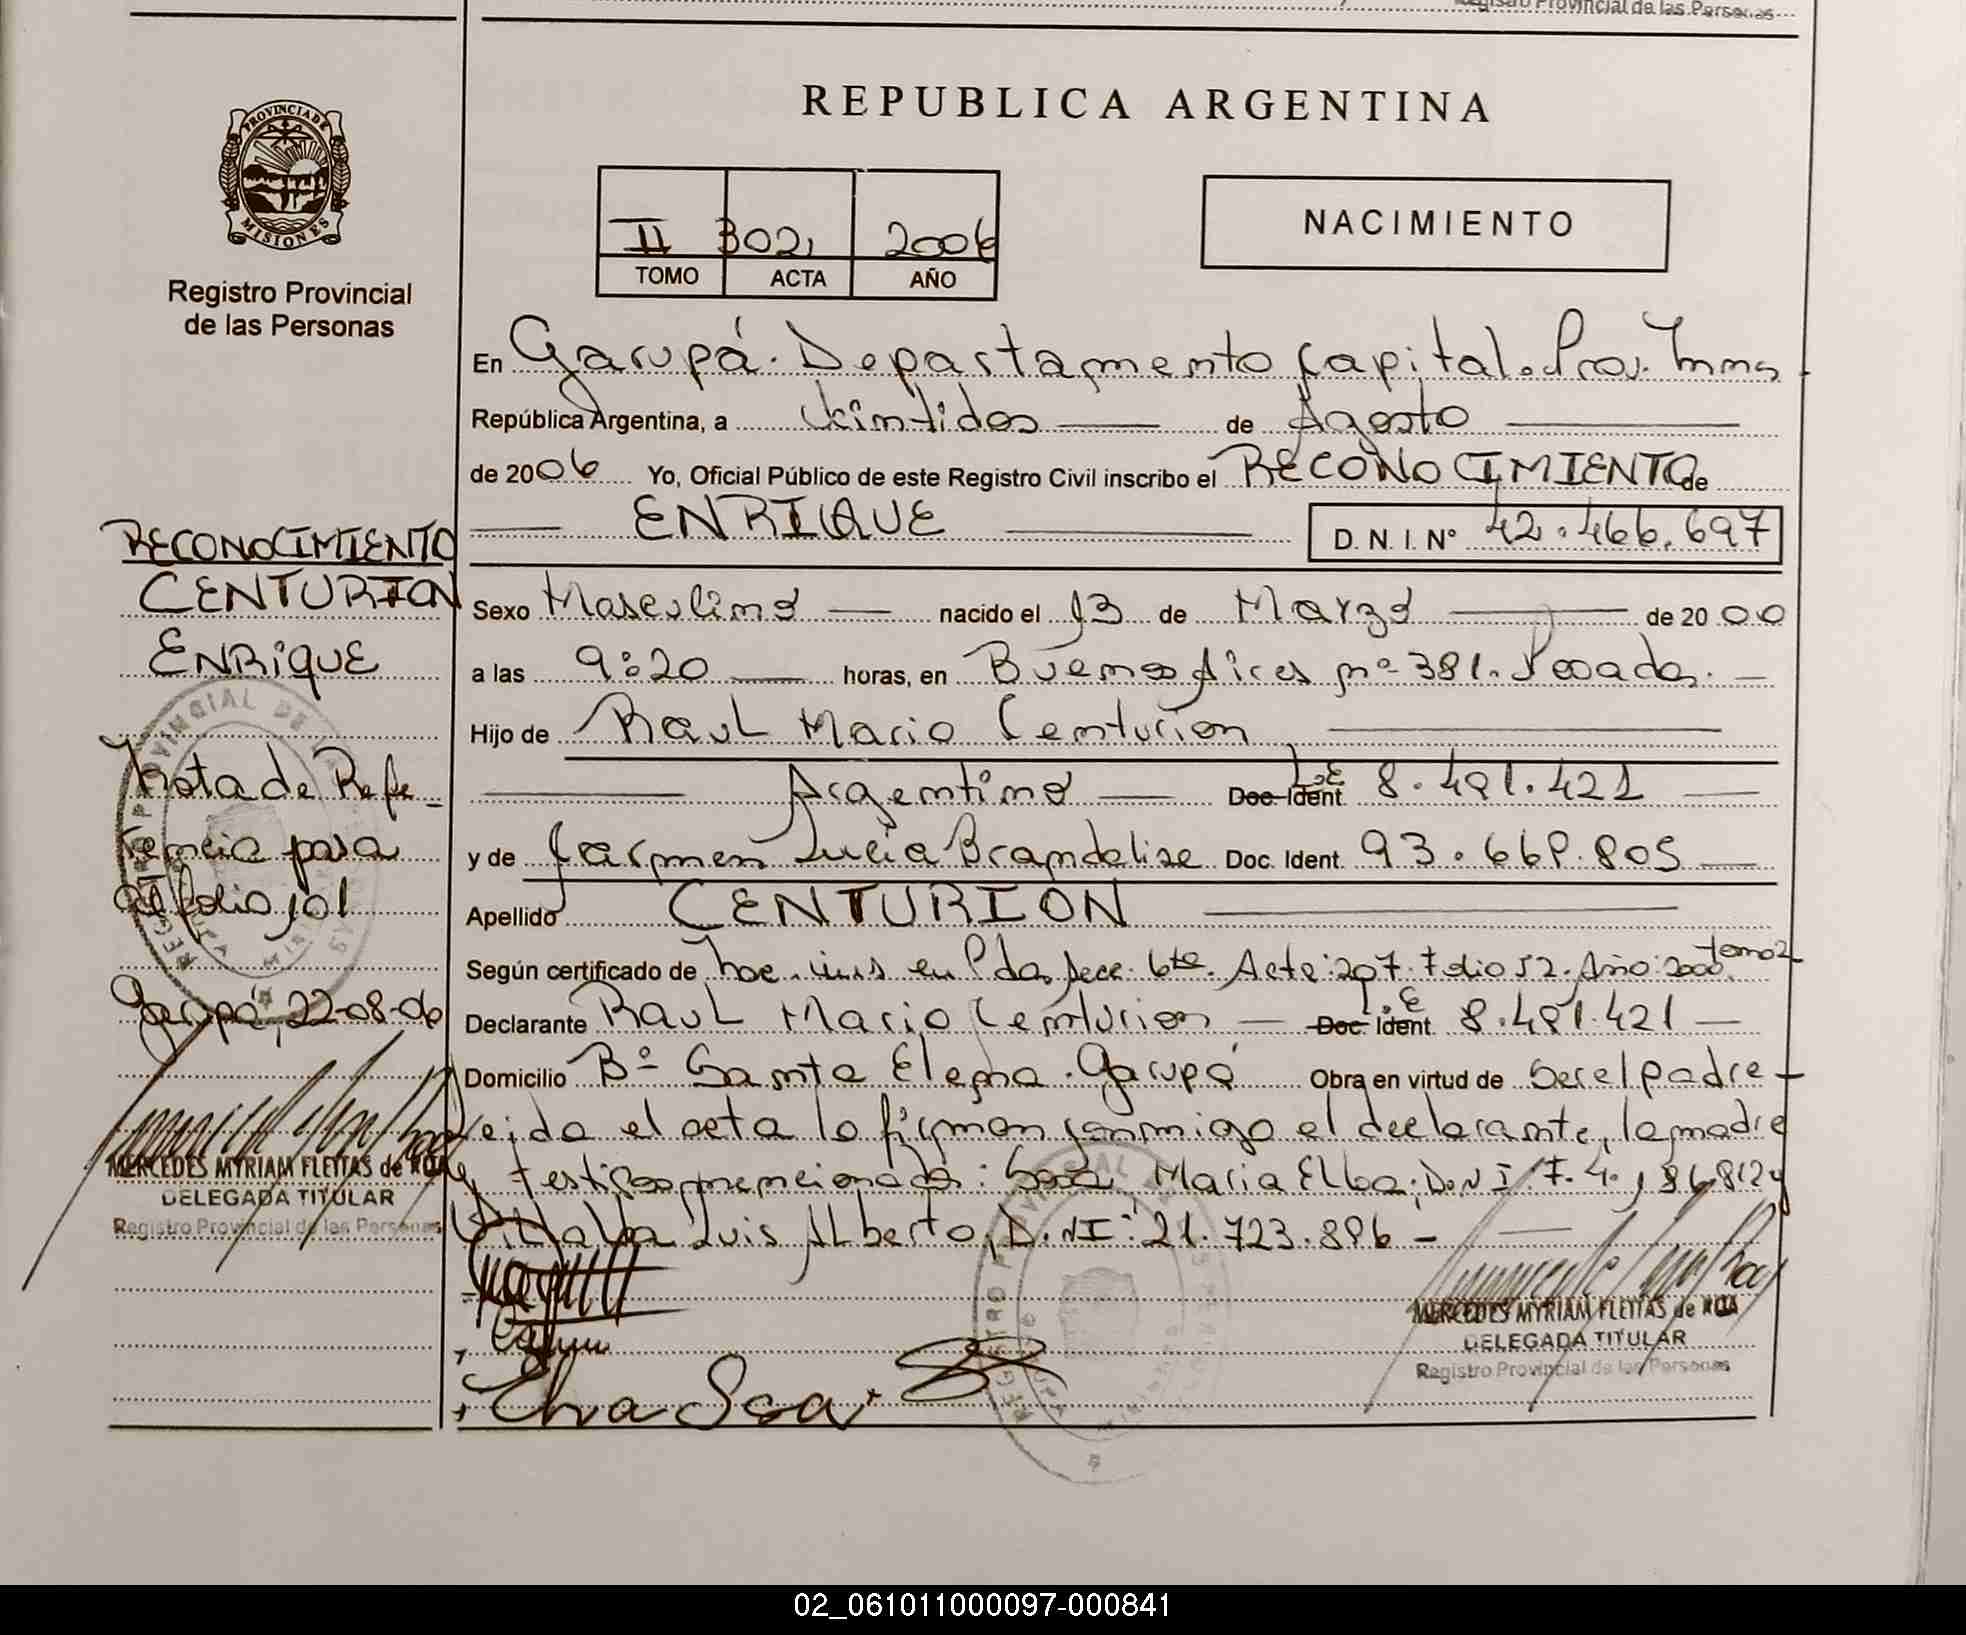 Registro Provincial de las Personas
PROVINCIA DE
MISIONES
Registro Provincial
de las Personas
REPUBLICA ARGENTINA
II 302 2006
TOMO ACTA AÑO
NACIMIENTO
En Garupá. Departamento Capital. Prov. Mnes
República Argentina, a Veintidos de Agosto
de 2006 Yo, Oficial Público de este Registro Civil inscribo el RECONOCIMIENTO de
ENRIQUE D.N.I. N° 42.466.697
Sexo Masculino nacido el 13 de Marzo de 2000
a las 9:20 horas, en Buenos Aires nº 381. Posadas.
Hijo de Raul Mario Centurion
Argentino Doc. Ident. L.E 8.491.421
y de Carmen Lucia Brandalise Doc. Ident. 93.668.805
Apellido CENTURION
Según certificado de en Pdas Secc. 6ta. Acta: 207. Folio 52. Año: 2000. tomo 2
Declarante Raul Mario Centurion Doc. Ident. L.E 8.491.421
Domicilio Bº Santa Elena. Garupá Obra en virtud de Ser el padre
Leida el acta lo firman conmigo el declarante, la madre
y testigos Sosa Maria Elba; D.N.I. F. 4.
Villalba Luis Alberto, D.NI: 21.723.896 -
Elva Sosa
MERCEDES MYRIAM FLEITAS de ROA
DELEGADA TITULAR
Registro Provincial de las Personas
RECONOCIMIENTO
CENTURION
ENRIQUE
Nota de Refe-
rencia pasa
al folio 101
Garupá, 22-08-06
MERCEDES MYRIAM FLEITAS de ROA
DELEGADA TITULAR
Registro Provincial de las Personas
02_061011000097-000841